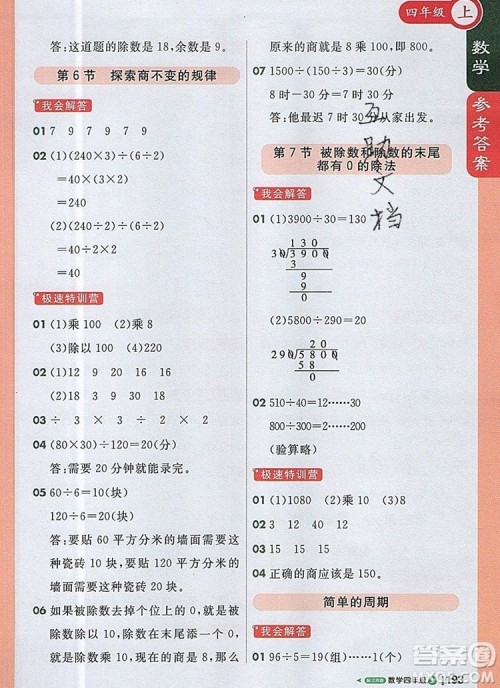 答：这道题的除数是 18,余数是 9。
第 6 节 探索商不变的规律
我会解答
01 7 9 7 9 7 9
02 (1)(240×3)÷(6÷2)
=40×(3×2)
=240
(2)(240÷2)÷(6÷2)
=40÷2×2
=40
极速特训营
01 (1)乘 100 (2)乘 8
(3)除以 100 (4)220
02 (1)12 9 20 16 16
(2)18 3 9 30 18
03 ÷ ÷ × ÷ × ×
04 (80×30)÷120=20(分)
答：需要 20 分钟就能录完。
05 60÷6=10(块)
120÷6=20(块)
答：要贴 60 平方分米的墙面需要这种瓷砖 10 块,要贴 120 平方分米的墙面需要这种瓷砖 20 块。
06 如果被除数去掉个位上的 0,被除数除以 10,除数不变,那么商除以 10,现在的商是 8,那么
原来的商就是 8 乘 100,即 800。
07 1500÷(150÷3)=30(分)
8 时-30 分=7 时 30 分
答：他最迟 7 时 30 分从家出发。
第 7 节 被除数和除数的末尾
都有 0 的除法
我会解答
01 (1)3900÷30=130
130
30 3900
3
9
9
0
(2)5800÷290=20
20
290 5800
58
0
02 510÷40=12……30
800÷300=2……200
(验算略)
极速特训营
01 (1)1080 (2)乘 10 (3)8
02 3 12 40 15
03 C
04 正确的商应该是 150。
简单的周期
我会解答
01 96÷5=19(组)……1(个)
四年级 上
数学
参考答案
互助文档
数学四年级
193
答案